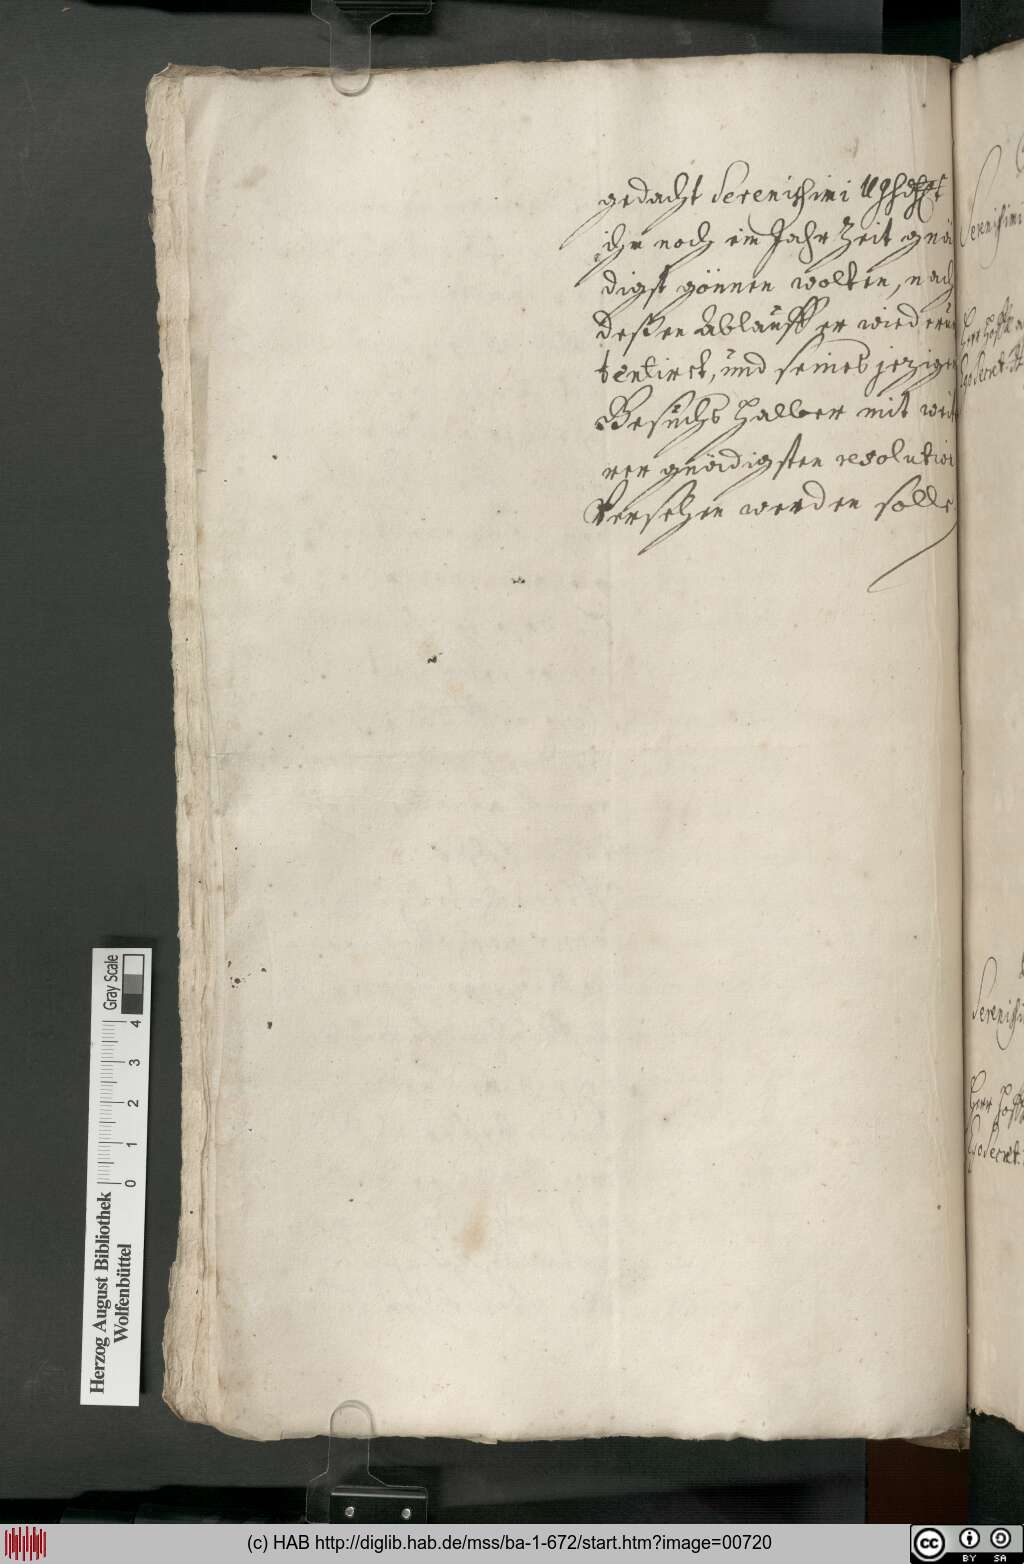 gedacht Serenissimi
ihn noch ein Jahr Zeit gnä
digst gönnen wolten, nach
deßen Ablauff er wiederum
tentirct, und seines jezigen
Gesuchs halber mit weit
rer gnädigsten resolution
versehen werden solle.
Serenissimi
Herr
Serenissi
Herr
Gray Scale
0 1 2 3 4
Herzog August Bibliothek
Wolfenbüttel
(c) HAB http://diglib.hab.de/mss/ba-1-672/start.htm?image=00720
cc BY SA